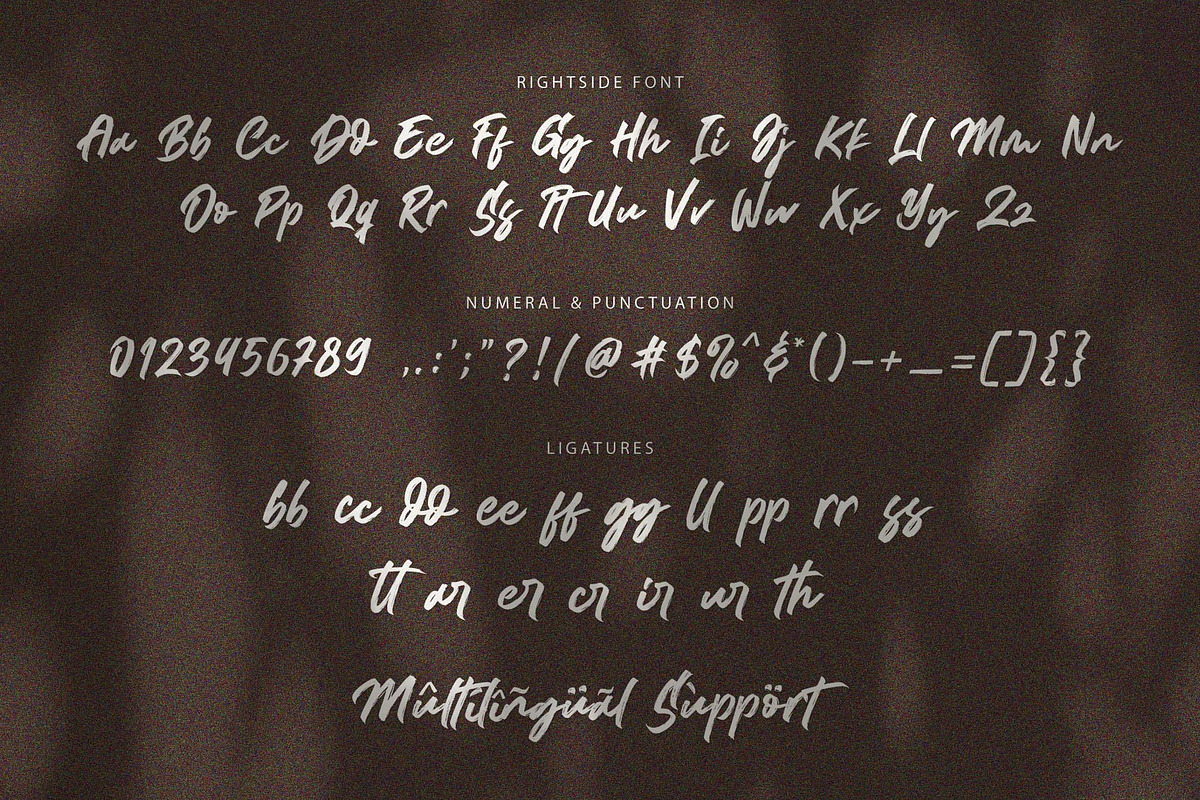 RIGHTSIDE FONT
Aa Bb Cc Dd Ee Ff Gg Hh Ii Jj Kk Ll Mm Nn
Oo Pp Qq Rr Ss Tt Uu Vv Ww Xx Yy Zz
NUMERAL & PUNCTUATION
0123456789 ,.:';"?!/@#$%^&*()-+_=[]{}
LIGATURES
bb cc dd ee ff gg ll pp rr ss
tt ar er cr ir ur th
Mûltilîñgüãl Sùppört